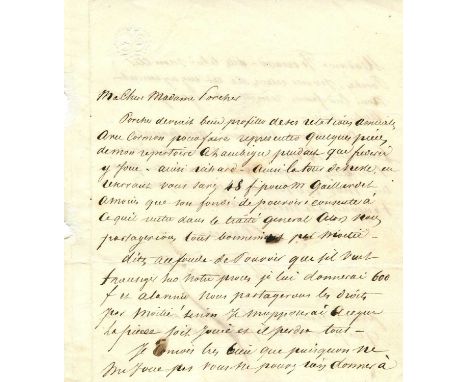 Ma Chere Madame Porcher
Porcher devrait bien profiter de ses relations
avec Cormon pour faire representer quelques pieces
de mon repertoire a l'ambigu pendant que
y Joue - ainsi richard - ainsi la tour de nesle en
vous 48 f pour M Gaillardet
amoins que son fondé de pouvoirs consente à
ce qui reste dans le traité general alors nous
partagerions tout bonnement par Moitié -
dites au fondé de Pouvoir que s'il veut
transiger sur notre procès je lui donnerai 600
f et alavenir nous partagerons les droits
par Moitié sinon Je m'opposerai à ce que
la pièce soit Jouée et il perdra tout -
Je très bien que puisqu'on ne
me Joue pas vous ne pouvez rien donner à